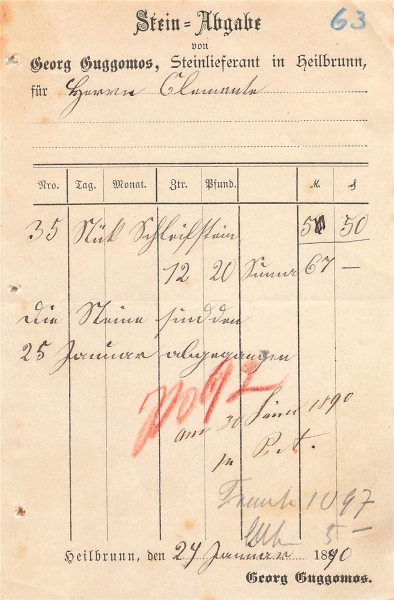 Stein=Abgabe
63
von
Georg Guggomos, Steinlieferant in Heilbrunn,
für Herrn Clemente
Nro. Tag. Monat. Ztr. Pfund. M. ₰
35 Stük Schleifstein 50
12 20 Suma 67 —
die Steine sind den
25 Januar abgegangen
am 30 1890
Heilbrunn, den 24 Januar 1890
Georg Guggomos.